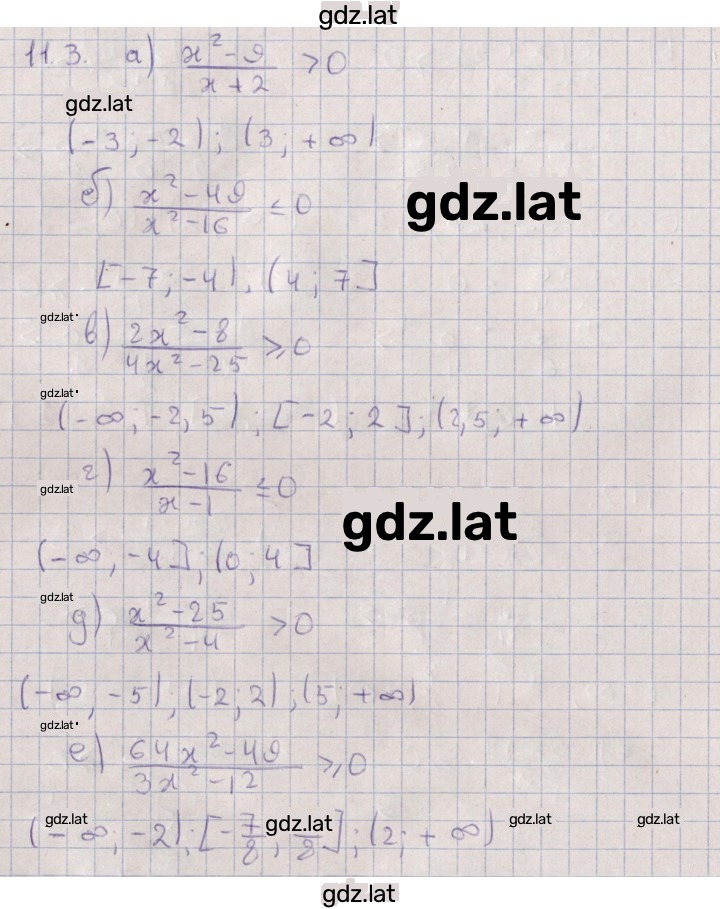 gdz.lat
11.3. а) x²-9/x+2 >0
gdz.lat
(-3; -2); (3; +∞)
б) x²-49/x²-16 ≤0
gdz.lat
[-7; -4); (4; 7]
gdz.lat
в) 2x²-8/4x²-25 ≥0
gdz.lat
(-∞; -2,5); [-2; 2]; (2,5; +∞)
г) x²-16/x-1 ≤0
gdz.lat
gdz.lat
(-∞; -4]; (0; 4]
gdz.lat
д) x²-25/x²-4 >0
(-∞; -5); (-2; 2); (5; +∞)
gdz.lat
е) 64x²-49/3x²-12 ≥0
gdz.lat gdz.lat gdz.lat gdz.lat
(-∞; -2); [-7/8; /8]; (2; +∞)
gdz.lat